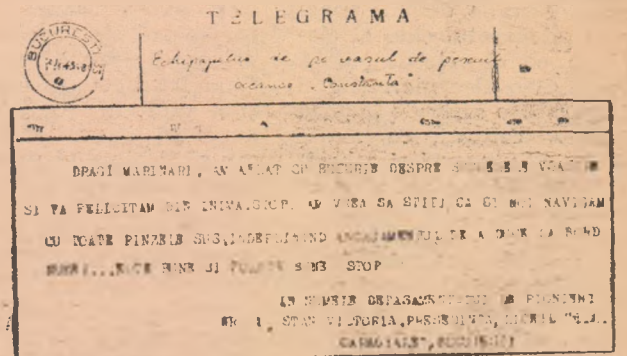 TELEGRAMA
BUCUREȘTI
Echipajului de pe vasul de pescuit
oceanic "Constanța"
DRAGI MARINARI, AM AFLAT CU BUCURIE DESPRE
SI VA FELICITAM DIN INIMA.STOP. AM VREA SA STITI CA SI NOI NAVIGAM
CU TOATE PINZELE SUS,INDEPLININD ANGAJAMENTUL DE A DUCE LA BORD
BINE SI FOARTE BINE STOP
IN NUMELE DETASAMENTULUI DE PIONIERI
NR 1, STAN VICTORIA,PRESEDINTA, LICEUL "I.L.
CARAGIALE",BUCURESTI